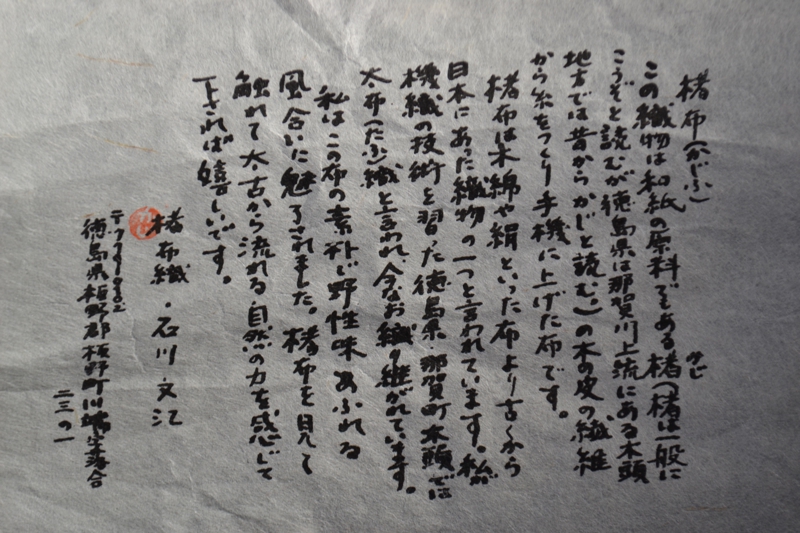 楮布(かじふ)
この織物は和紙の原料である楮(楮は一般に
かじ
こうぞと読むが徳島県は那賀川上流にある木頭
地方では昔からかじと読む。)の木の皮の繊維
から糸をつくり手機に上げた布です。
楮布は木綿や絹といった布より古くから
日本にあった織物の一つと言われています。私が
機織の技術を習った徳島県・那賀町木頭では
太布(たふ)織と言われ、今なお織り継がれています。
私はこの布の素朴い野性味あふれる
風合いに魅了されました。楮布を見て
触れて太古から流れる自然の力を感じて
下されば嬉しいです。
楮布織・石川文江
徳島県板野郡板野町川端字落合
二三の一